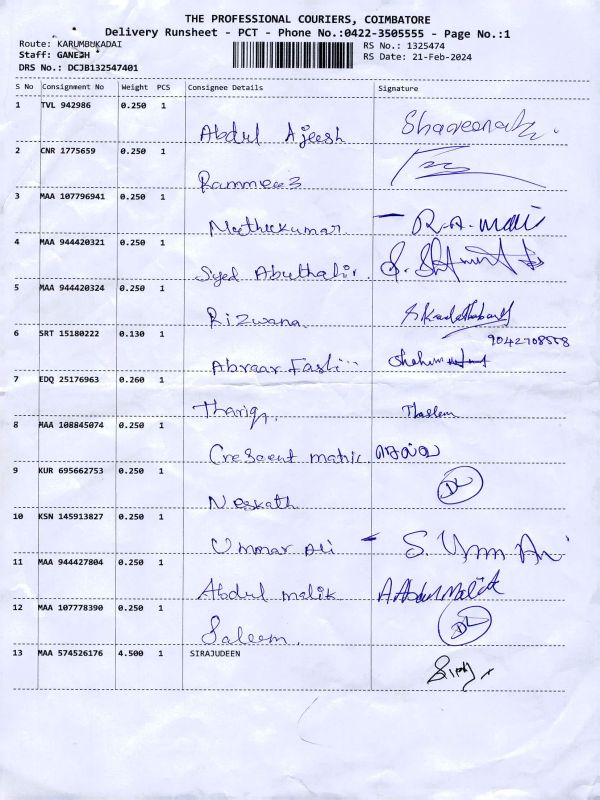 THE PROFESSIONAL COURIERS, COIMBATORE
Delivery Runsheet - PCT - Phone No.:0422-3505555 - Page No.:1
Route: KARUMBUKADAI RS No.: 1325474
Staff: GANESH RS Date: 21-Feb-2024
DRS No.: DCJB132547401
S No Consignment No Weight PCS Consignee Details Signature
1 TVL 942986 0.250 1
Abdul Ajeesh
2 CNR 1775659 0.250 1
3 MAA 107796941 0.250 1
Meethukumar R.A. mani
4 MAA 944420321 0.250 1
Syed Abuthahir.
5 MAA 944420324 0.250 1
Rizwana
6 SRT 15180222 0.130 1 9042708558
Abraar Fasli
7 EDQ 25176963 0.260 1
Thariq Thaslem
8 MAA 108845074 0.250 1
Crescent matric
9 KUR 695662753 0.250 1 DL
Neskath
10 KSN 145913827 0.250 1
Ummar Ali
11 MAA 944427804 0.250 1
Abdul malik A.Abdul Malik
12 MAA 107778390 0.250 1 DL
Saleem.
13 MAA 574526176 4.500 1 SIRAJUDEEN